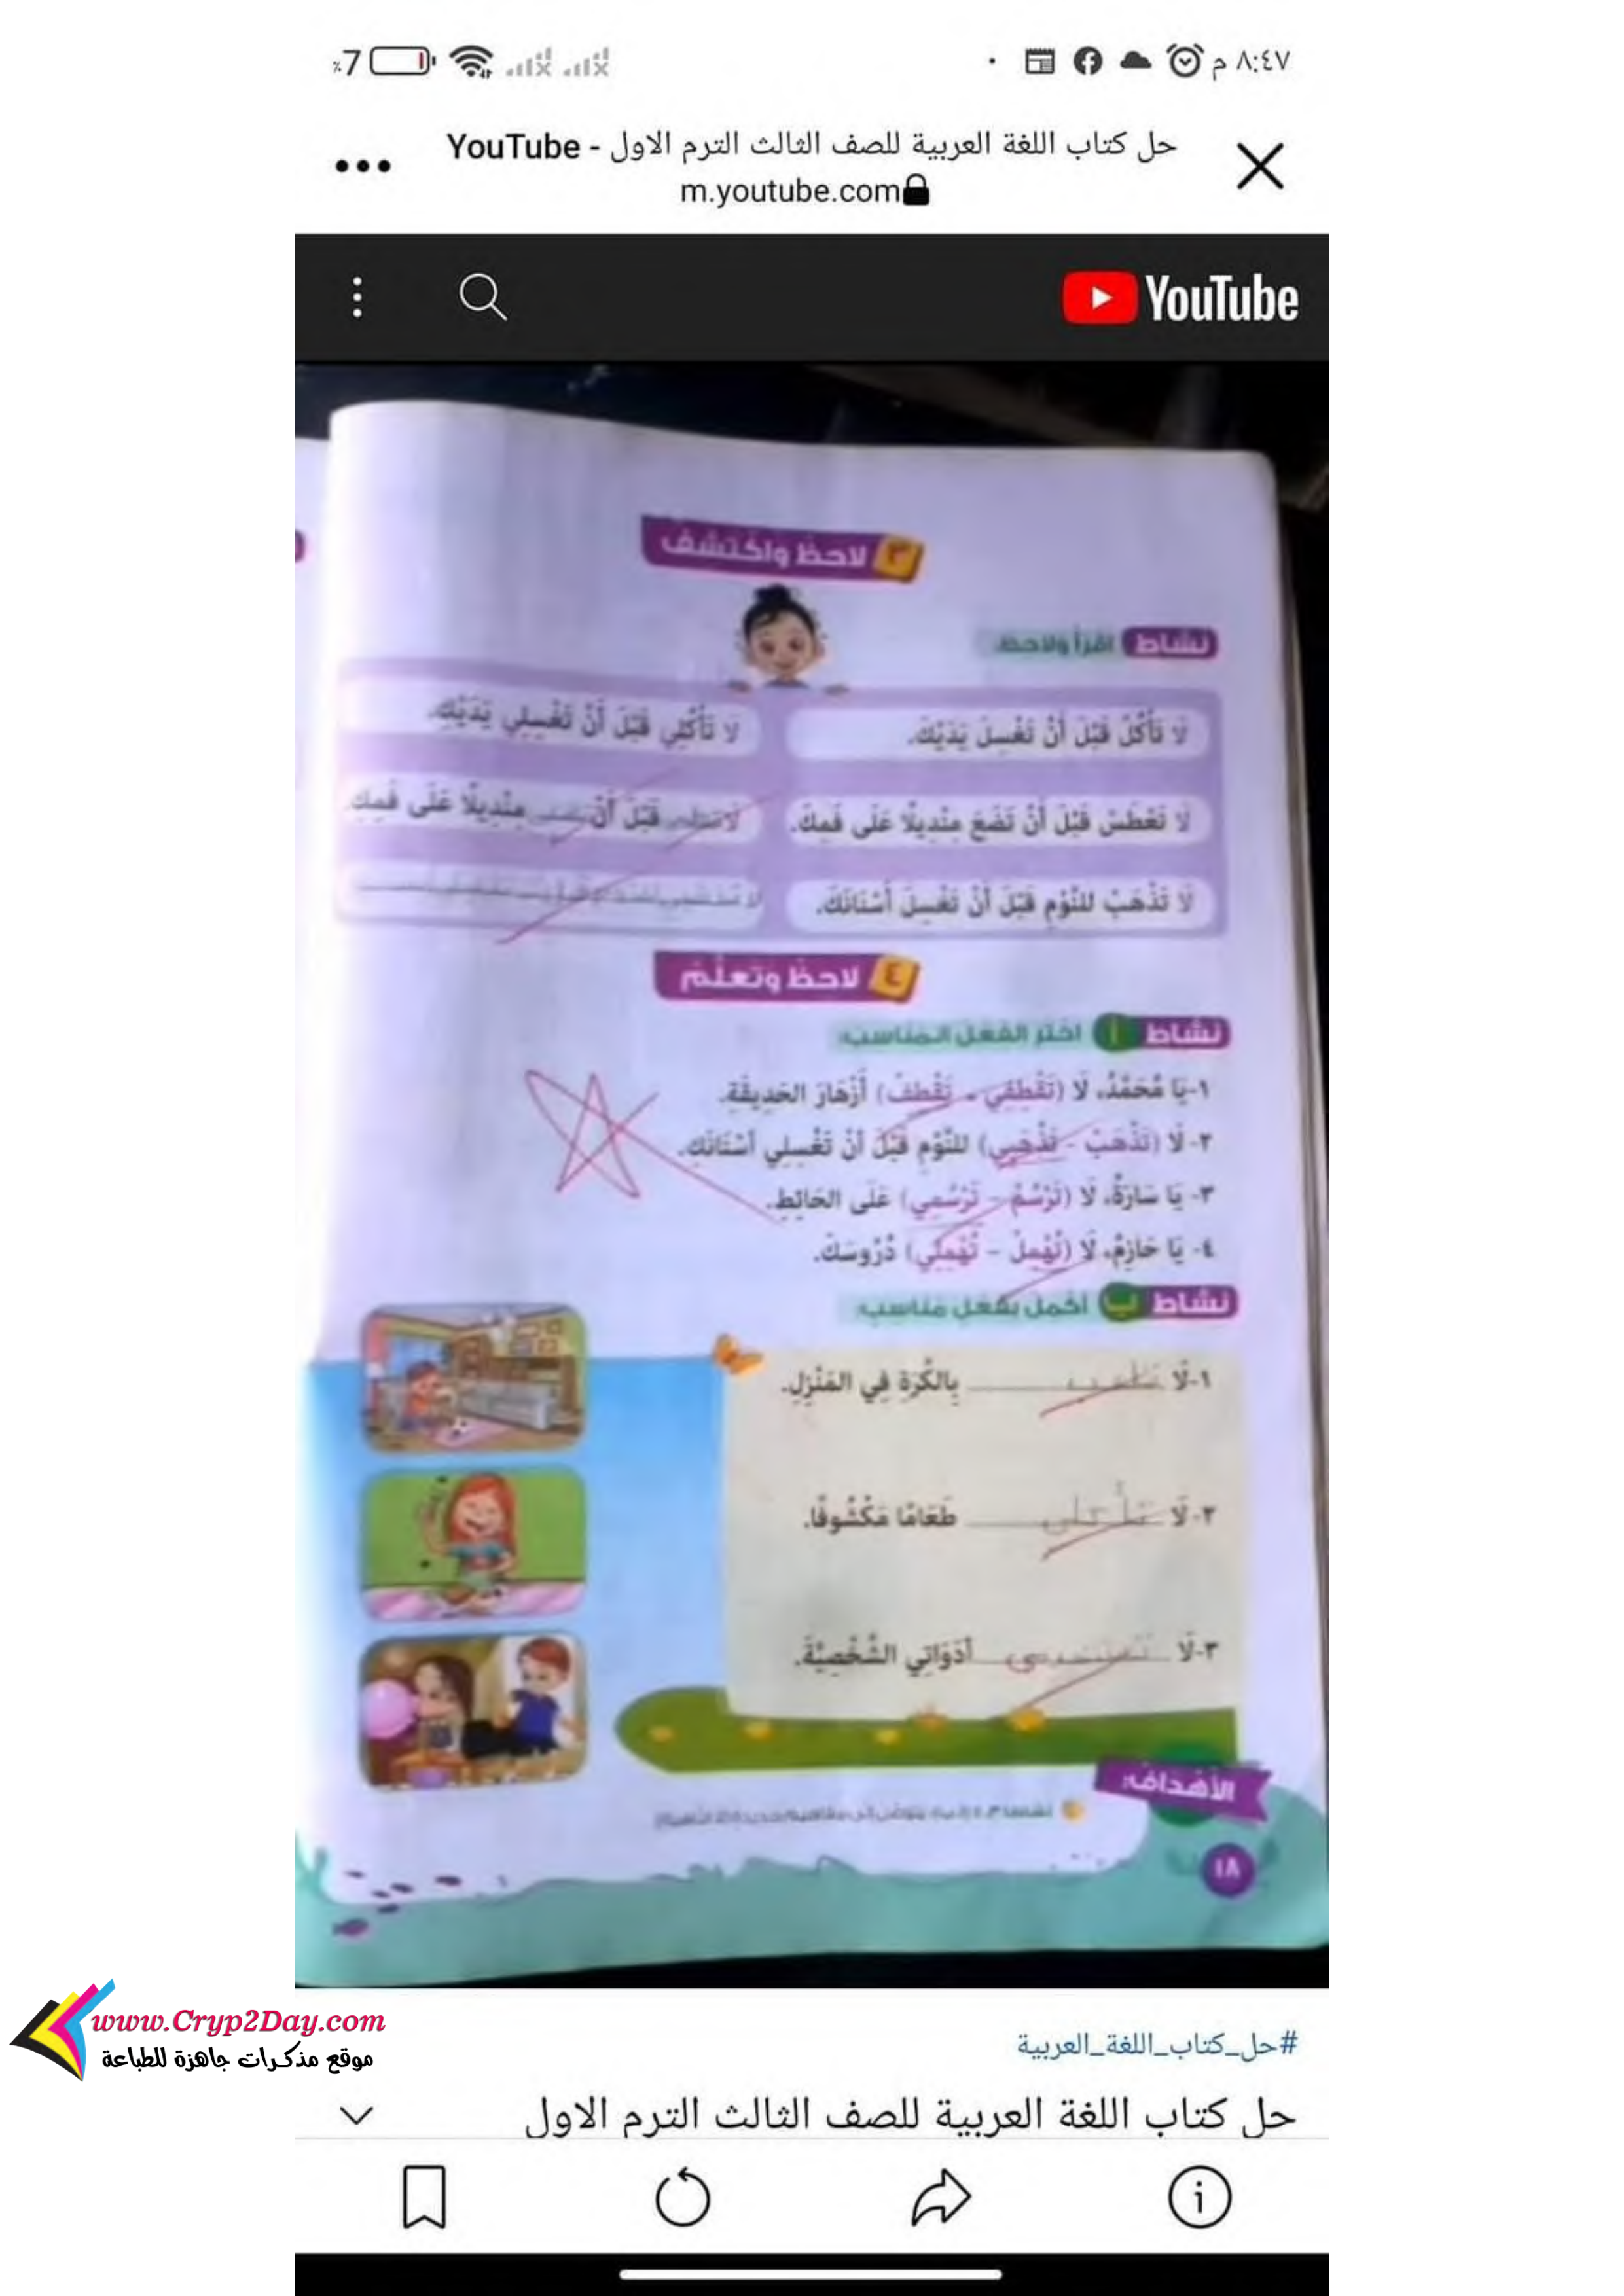 ٨:٤٧ م
7٪
حل كتاب اللغة العربية للصف الثالث الترم الاول - YouTube
m.youtube.com
YouTube
٣ لاحظ واكتشف
نشاط اقرأ ولاحظ.
لَا تَأْكُلْ قَبْلَ أَنْ تَغْسِلَ يَدَيْكَ.
لَا تَأْكُلِي قَبْلَ أَنْ تَغْسِلِي يَدَيْكِ.
لَا تَعْطَسْ قَبْلَ أَنْ تَضَعَ مِنْدِيلًا عَلَى فَمِكَ.
لَا قَبْلَ أَنْ مِنْدِيلًا عَلَى فَمِكِ.
لَا تَذْهَبْ لِلنَّوْمِ قَبْلَ أَنْ تَغْسِلَ أَسْنَانَكَ.
لا
٤ لاحظ وتعلم
نشاط أ اختر الفعل المناسب:
١-يَا مُحَمَّدُ، لَا (تَقْطِفِي - تَقْطِفْ) أَزْهَارَ الحَدِيقَةِ.
٢- لَا (تَذْهَبْ - تَذْهَبِي) لِلنَّوْمِ قَبْلَ أَنْ تَغْسِلِي أَسْنَانَكِ.
٣- يَا سَارَةُ، لَا (تَرْسُمْ - تَرْسُمِي) عَلَى الحَائِطِ.
٤- يَا حَازِمُ، لَا (تُهْمِلْ - تُهْمِلِي) دُرُوسَكَ.
نشاط ب أكمل بفعل مناسب:
١-لَا تلعب بِالكُرَةِ فِي المَنْزِلِ.
٢-لَا تأكلى طَعَامًا مَكْشُوفًا.
٣-لَا أَدَوَاتِي الشَّخْصِيَّةَ.
الأهداف:
١٨
www.Cryp2Day.com
موقع مذكرات جاهزة للطباعة
#حل_كتاب_اللغة_العربية
حل كتاب اللغة العربية للصف الثالث الترم الاول